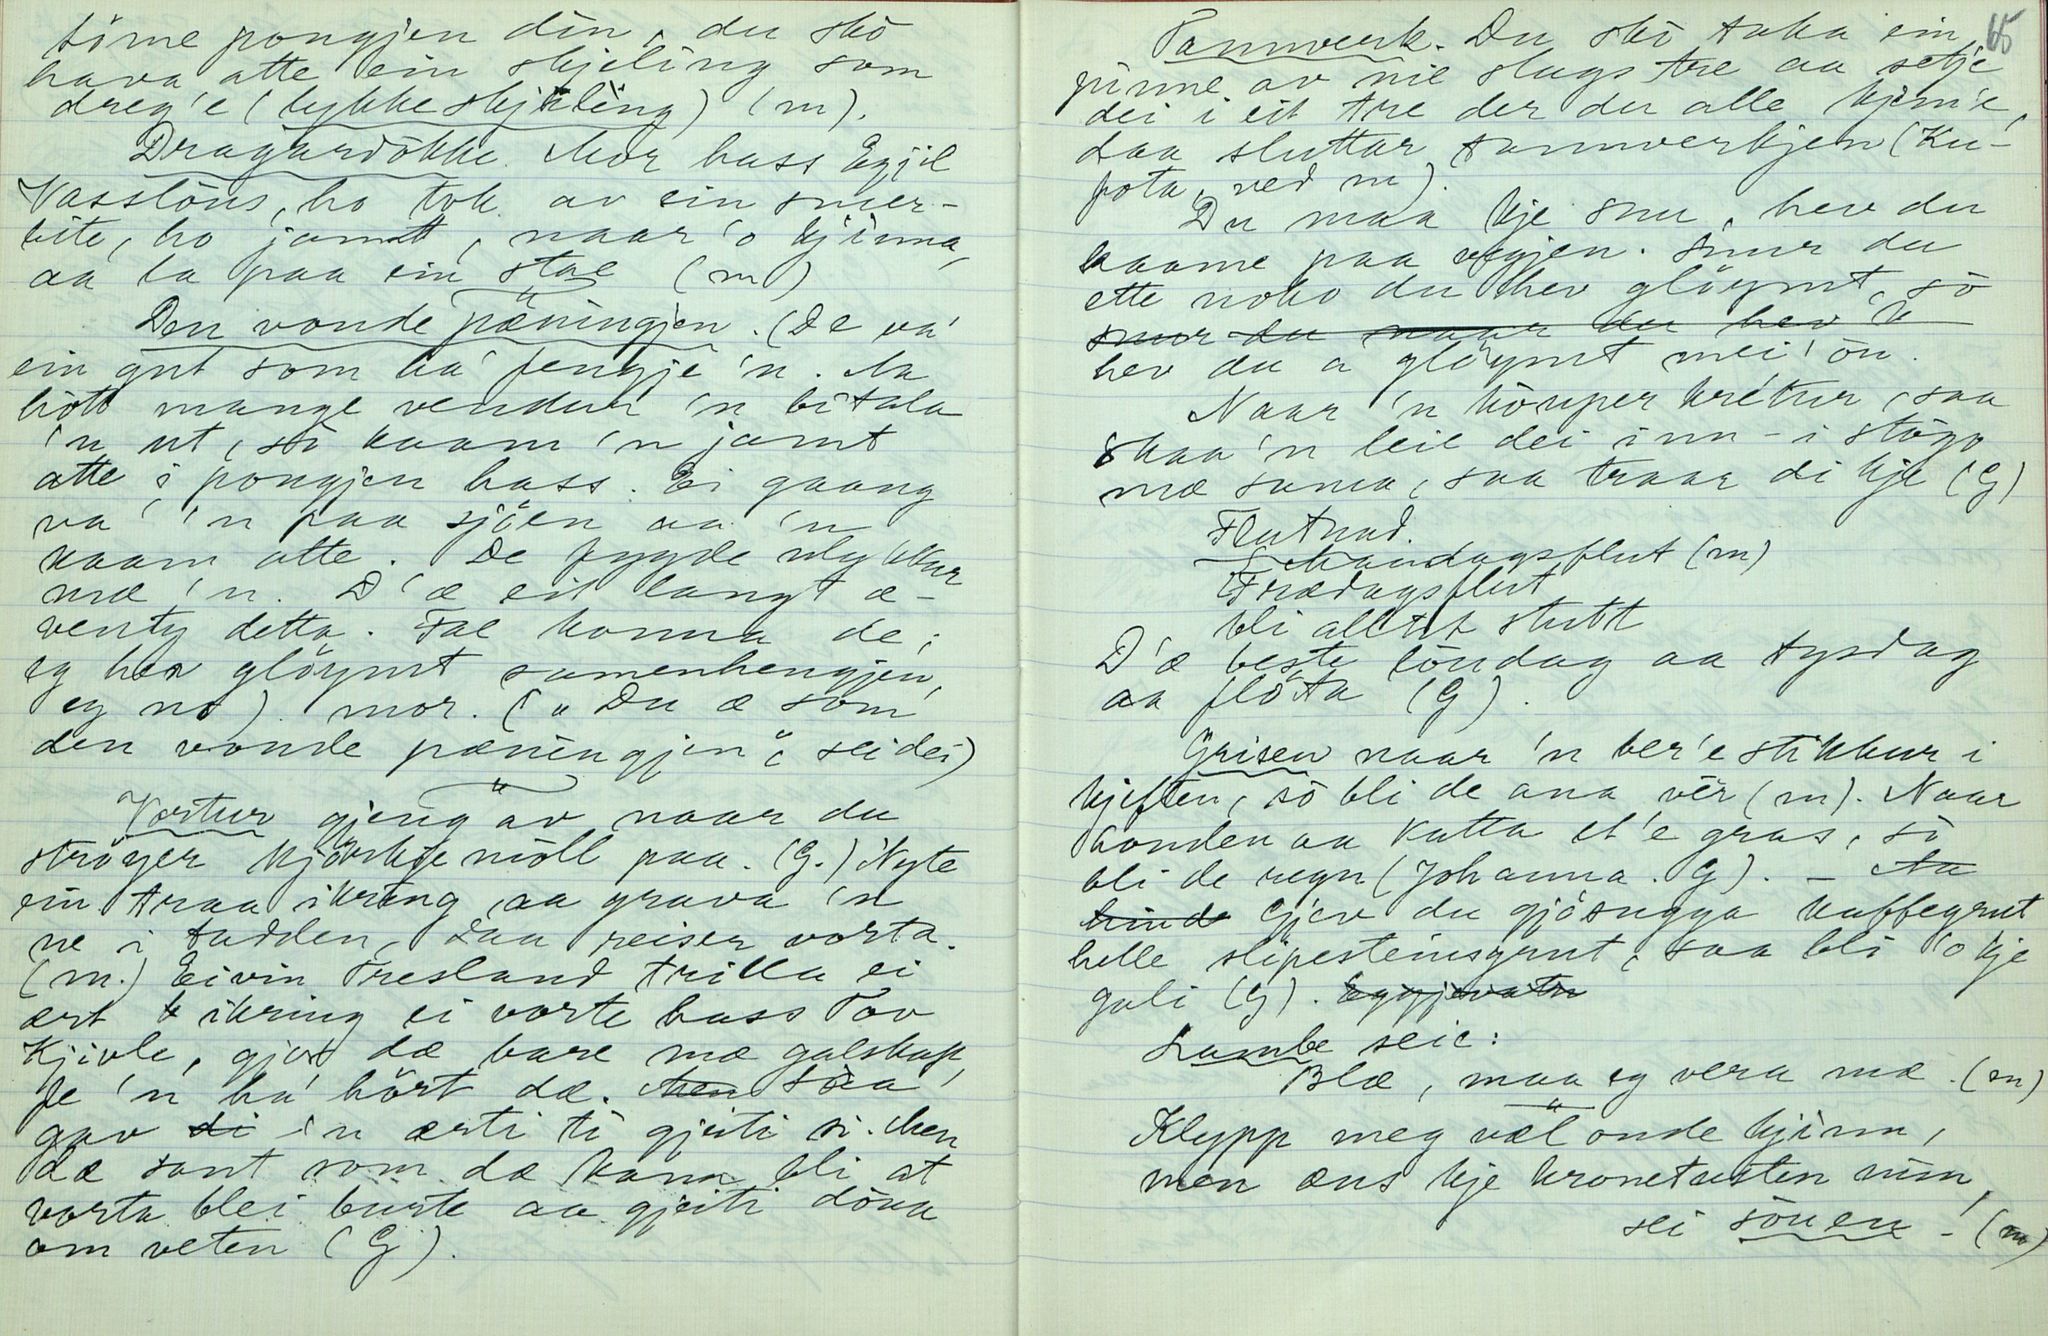 töme pongjen din, du skò
hava atte ein skjeling som
dreg'e (lykkeskjeling) (m).
Dragardòkke. Mor hass Egjil
Nasslöus, ho tok av ein smør-
bite, ho jamt, naar 'o kjinna,
aa la paa ein stae (m)
Den vonde pæningjen. (De va'
ein gut som ha' fengje 'n. Aa
hòtt mange vendur 'n bitala
'n ut, sò kaam 'n jamt
atte i pongjen hass. Ei gaang
va' 'n paa sjöen aa 'n
kaam atte. De fygde ulykkur
mæ 'n. D'æ eit langt æ-
venty detta. Tal konna de;
eg hev glöymt samenhengjen,
eg no). mor. („Du æ som
den vonde pæningjen“, sei dei)
Vortur gjeng av naar du
ströyer kjörkjemòll paa. (G.) Nyte
ein traa ikring, aa grava 'n
ne i tadden, daa reiser vorta.
(m.) Eivin Tresland trilla ei
ært ikring ei vorte hass Tov
Kjivle, gjor' dæ bare mæ galskap,
fe 'n ha' hört dæ. Men saa
gav di 'n ærti ti gjeiti si. Men
dæ sant som dæ kann bli at
vorta blei burte aa gjeiti döua
om veten (G).
65
Tannverk. Du skò taka ein
pinne av nie slags tre aa setje
dei i eit tre der du alle kjem'e,
daa sluttar tannverkjen (Ku-
pota, ved m).
Du maa kje snu, hev du
kaame paa vegjen. Snur du
ette noko du hev glöymt, sò
snur du naar du hev
hev du a glöymt mei' òn.
Naar 'n köuper krétur, saa
skaa'n leie dei inn-i stògo
mæ sama, saa traar di kje (G)
Flutnad.
Mandagsflut (m)
Frædagsflut
bli alltit stutt
D'æ beste löndag aa tysdag
aa flöta (G).
Grisen naar 'n ber'e stikkur i
kjeften, sò bli de ana vér (m). Naar
honden aa katta et'e gras, sò
bli de regn (Johanna. G). – Aa
binde Gjev du gjösugga kaffegrut
helle slipesteinsgrut, saa bli 'o kje
gali (G).
Lambe seie:
Blæ, maa eg vera mæ. (m)
Klypp meg væl onde kjinn,
men æns kje kronetusten min,
sei söuen! (m)